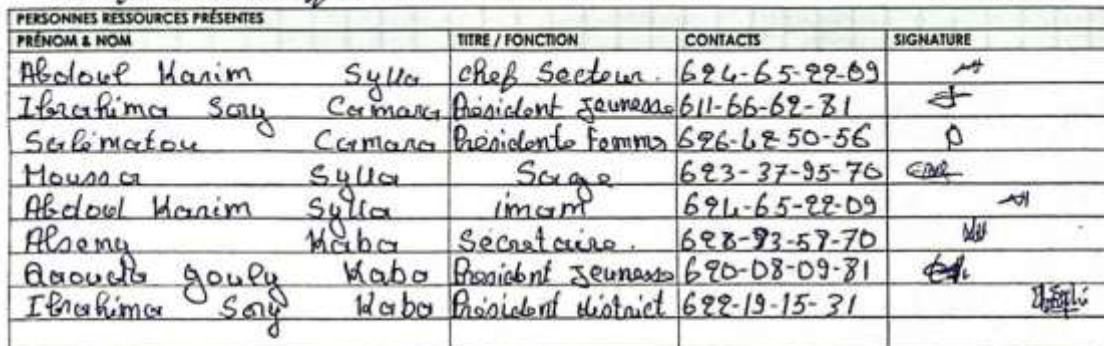 PERSONNES RESSOURCES PRÉSENTES
PRÉNOM & NOM TITRE / FONCTION CONTACTS SIGNATURE
Abdoul Karim Sylla chef Secteur. 624-65-22-09
Ibrahima Sory Camara Président Jeunesse 611-66-62-81
Salématou Camara Présidente Femms 626-42 50-56
Moussa Sylla Sage 623-37-95-70
Abdoul Karim Sylla imam 624-65-22-09
Alseny Kaba Sécretaire. 628-93-57-70
Kaba Président Jeunesse 620-08-09-81
Ibrahima Sory Kaba Président district 622-19-15-31